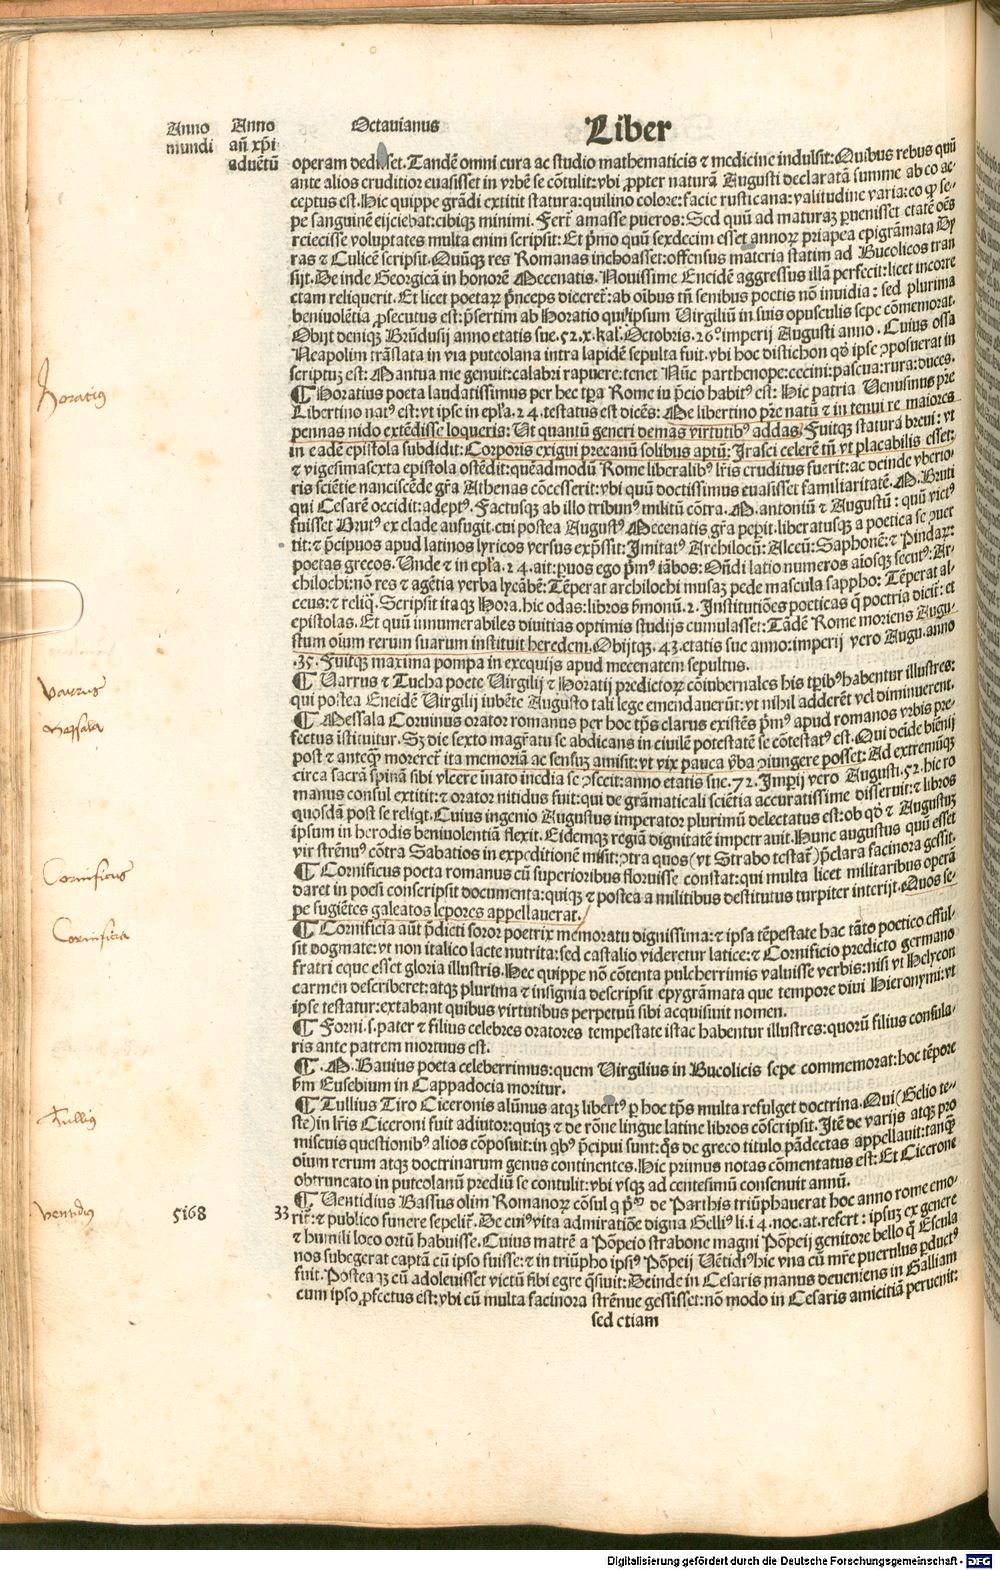 Anno mundi
Anno añ xp̄i aduētū
Octauianus
Liber
operam dedisset. Tandē omni cura ac studio mathematicis ⁊ medicine indulsit: Quibus rebus quū
ante alios eruditior euasisset in vrbē se cōtulit: vbi ꝓpter naturā Augusti declaratā summe ab eo ac-
ceptus est. Hic quippe grādi extitit statura: quilino colore: facie rusticana: valitudine varia: eo ꝙ se-
pe sanguinē eijciebat: cibiqꝫ minimi. Fert̄ amasse pueros: Sed quū ad maturaꝫ ꝑuenisset etatē oēs
reiecisse voluptates multa enim scripsit: Et p̄mo quū sexdecim esset annoꝝ priapea epigrāmata Dy
ras ⁊ Culicē scripsit. Quūqꝫ res Romanas inchoasset: offensus materia statim ad Bucolicos tran
sijt. Deinde Georgicā in honorē Mecenatis. Nouissime Eneidē aggressus illā perfecit: licet incorre
ctam reliquerit. Et licet poetaꝝ p̄nceps diceret̄: ab oībus tn̄ semibus poetis nō inuidia: sed plurima
beniuolētia ꝓsecutus est: p̄sertim ab Horatio qui ipsum Virgiliū in suis opusculis sepe cōmemorat.
Obijt deniqꝫ Brūdusij anno etatis sue .52. x. kal. Octobris. 26º. imperij Augusti anno. Cuius ossa
Neapolim trāslata in via puteolana intra lapidē sepulta fuit. vbi hoc distichon qd̄ ipse ꝯposuerat in
scriptuꝫ est: Mantua me genuit: calabri rapuere: tenet Nūc parthenope: cecini: pascua: rura: duces.
¶ Horatius poeta laudatissimus per hec tꝑa Rome in p̄cio habitꝰ est: Hic patria Uenusinus pr̄e
Libertino natꝰ est: vt ipse in epl̄a .24. testatus est dicēs: Me libertino pr̄e natū ⁊ in tenui re maiores
pennas nido extēdisse loqueris: Ut quantū generi demas virtutibꝰ addas. Fuitqꝫ statura breui: vt
in eadē epistola subdidit: Corporis exigui precanū solibus aptū: Irasci celerē tn̄ vt placabilis esset:
⁊ vigesimasexta epistola ostēdit: quēadmodū Rome liberalibꝰ lr̄is eruditus fuerit: ac deinde vberio-
ris sciētie nanciscēde gr̄a Athenas cōcesserit: vbi quū doctissimus euasisset familiaritatē. M. Bruti
qui Cesarē occidit: adeptꝰ. Factusqꝫ ab illo tribunꝰ militū cōtra. M. antoniū ⁊ Augustū: quū victꝰ
fuisset Brutꝰ ex clade aufugit. cui postea Augustꝰ Mecenatis gr̄a peꝑit. liberatusqꝫ a poetica se ꝯuer
tit: ⁊ p̄cipuos apud latinos lyricos versus exp̄ssit: Imitatꝰ Archilocū: Alceū: Saphonē: ⁊ Pindarꝫ:
poetas grecos. Unde ⁊ in epl̄a .24. ait: puos ego p̄mꝰ iābos: Oñdi latio numeros aīosqꝫ secutꝰ: Ar-
chilochi: nō res ⁊ agētia verba lycābē: Tēperat archilochi musaꝫ pede mascula sappho: Tēperat al-
ceus: ⁊ reliq̄. Scripsit itaqꝫ Hora. hic odas: libros ẜmonū .2. Institutiōes poeticas q̄ poetria dicit̄: et
epistolas. Et quū innumerabiles diuitias optimis studijs cumulasset: Tādē Rome moriens Augu-
stum oīum rerum suarum instituit heredem. Obijtqꝫ .43. etatis sue anno: imperij vero Augu. anno
.35. Fuitqꝫ maxima pompa in exequijs apud mecenatem sepultus.
¶ Uarrus ⁊ Tucha poete Virgilij ⁊ Horatij predictoꝝ cōtubernales his tꝑibꝰ habentur illustres:
qui postea Eneidē Virgilij iubēte Augusto tali lege emendauerūt: vt nihil adderēt vel diminuerent.
¶ Messala Coruinus orator romanus per hoc tp̄s clarus existēs p̄mꝰ apud romanos vrbis pre-
fectus īstituitur. Sꝫ die sexto magr̄atu se abdicans in ciuilē potestatē se cōtestatꝰ est. Qui deīde biēnij
post ⁊ anteqꝫ̄ morerer̄ ita memoriā ac sensuꝫ amisit: vt vix pauca v̄ba ꝯiungere posset: Ad extremūqꝫ
circa sacrā spinā sibi vlcere inato inedia se ꝯfecit: anno etatis sue .72. Imp̄ij vero Augusti. 52. hic ro
manus consul extitit: ⁊ orator nitidus fuit: qui de grāmaticali sciētia accuratissime disseruit: ⁊ libros
quosdā post se reliq̄t. Cuius ingenio Augustus imperator plurimū delectatus est: ob qd̄ ⁊ Augustuꝫ
ipsum in herodis beniuolentiā flexit. Eidemqꝫ regiā dignitatē impetrauit. Hunc augustus quū esset
vir strēnuꝰ cōtra Sabatios in expeditionē misit: ꝯtra quos (vt Strabo testat̄) p̄clara facinora gessit.
¶ Cornificus poeta romanus cū superioribus floruisse constat: qui multa licet militaribus operā
daret in poesi conscripsit documenta: quiqꝫ ⁊ postea a militibus destitutus turpiter interijt. Quos se-
pe fugiētes galeatos lepores appellauerat.
¶ Cornificia aūt p̄dicti soror poetrix memoratu dignissima: ⁊ ipsa tēpestate hac tāto poetico efful-
sit dogmate: vt non italico lacte nutrita: sed castalio videretur latice: ⁊ Cornificio predicto germano
fratri eque esset gloria illustris. Hec quippe nō cōtenta pulcherrimis valuisse verbis: nisi vt Helycon
carmen describeret: atqꝫ plurima ⁊ insignia descripsit epygrāmata que tempore diui Hieronymi: vt
ipse testatur: extabant quibus virtutibus perpetuū sibi acquisiuit nomen.
¶ Forni. s. pater ⁊ filius celebres oratores tempestate istac habentur illustres: quorū filius consula-
ris ante patrem mortuus est.
¶ .M. Bauius poeta celeberrimus: quem Virgilius in Bucolicis sepe commemorat: hoc tēpore
ẜm Eusebium in Cappadocia moritur.
¶ Tullius Tiro Ciceronis alūnus atqꝫ libertꝰ ꝑ hoc tp̄s multa refulget doctrina. Qui (Gelio te-
ste) in lr̄is Ciceroni fuit adiutor: quiqꝫ ⁊ de rōne lingue latine libros cōscripsit. Itē de varijs atqꝫ pro
miscuis questionibꝰ alios cōposuit: in qbꝰ p̄cipui sunt: q̄s de greco titulo pādectas appellauit: tanqꝫ̄
oīum rerum atqꝫ doctrinarum genus continentes. Hic primus notas cōmentatus est: Et Cicerone
obtruncato in puteolanū prediū se contulit: vbi vsqꝫ ad centesimū consenuit annū.
¶ Uentidius Bassus olim Romanoꝝ cōsul q p̄mꝰ de Parthis triūphauerat hoc anno rome emo-
5168 33 rit̄: ⁊ publico funere sepelit̄. De cuiꝰ vita admiratiōe digna Gelliꝰ li. 14. noc. at. refert: ipsuꝫ ex genere
⁊ humili loco ortū habuisse. Cuius matrē a Pōpeio strabone magni Pōpeij genitore bello q̄ Escula
nos subegerat captā cū ipso fuisse: ⁊ in triūpho ipsiꝰ Pōpeij Uētidiꝰ hic vna cū mr̄e puerulus ꝓductꝰ
fuit. Postea qꝫ cū adoleuisset victū sibi egre q̄siuit: Deinde in Cesaris manus deueniens in Galliam
cum ipso ꝓfectus est: vbi cū multa facinora strēnue gessisset: nō modo in Cesaris amicitiā peruenit:
sed etiam
Horatius
Varrus
Messala
Cornificus
Cornificia
Tullius
Ventidius
Digitalisierung gefördert durch die Deutsche Forschungsgemeinschaft - DFG